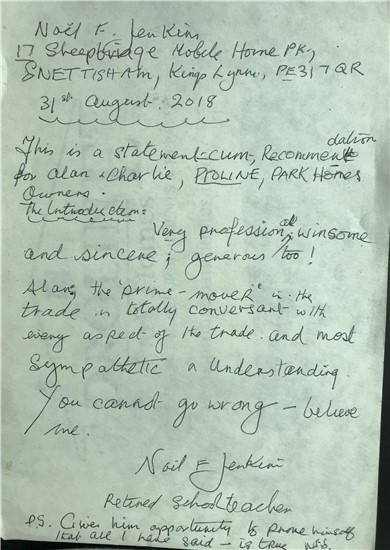 Noël F. Jenkins
17 Sheepbridge Mobile Home PK,
SNETTISHAM, Kings Lynn, PE31 7QR
31st August. 2018
This is a statement-cum, Recommendation
for Alan & Charlie, PROLINE, PARK Homes
Owners.
The Introduction:
Very professional, winsome
and sincere; generous too!
Alan, the "prime-mover" in the
trade is totally conversant with
every aspect of the trade and most
Sympathetic & Understanding.
You cannot go wrong - believe
me.
Noël F Jenkins
Retired Schoolteacher
P.S. Given him opportunity to prove himself
that all I have said - is true